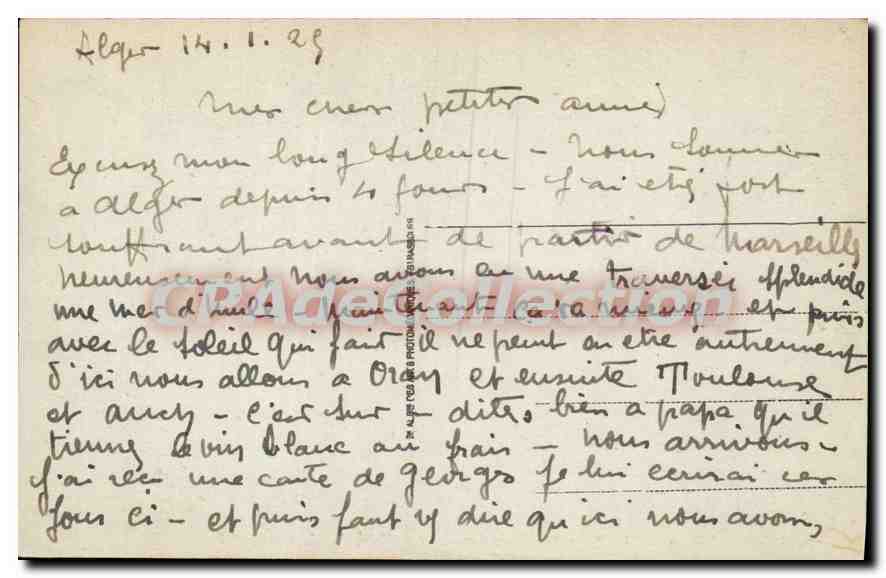 Alger 14.1.29
mes chers petites amies
Excusez mon long silence – Nous sommes
a Alger depuis 4 jours – J'ai eté fort
souffrant avant de partir de Marseille
heureusement nous avons eu une traversée splendide
une mer d'huile – maintenant ça va mieux et puis
avec le soleil qui fait il ne peut en etre autrement
d'ici nous allons a Oran et ensuite Toulouse
et Auch – c'est sur – dites bien a papa qu'il
tienne le vin blanc au frais – nous arrivons –
J'ai reçu une carte de Georges je lui ecrirai ces
jours ci – et puis faut y dire qu'ici nous avons,
CPAdeCollection